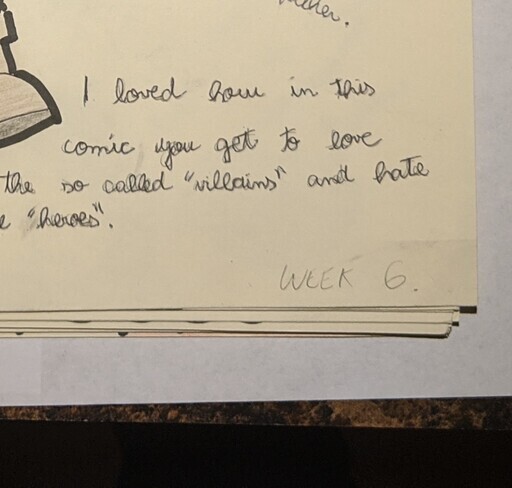 I loved how in this
comic you get to love
the so called "villains" and hate
"heroes".
WEEK 6.